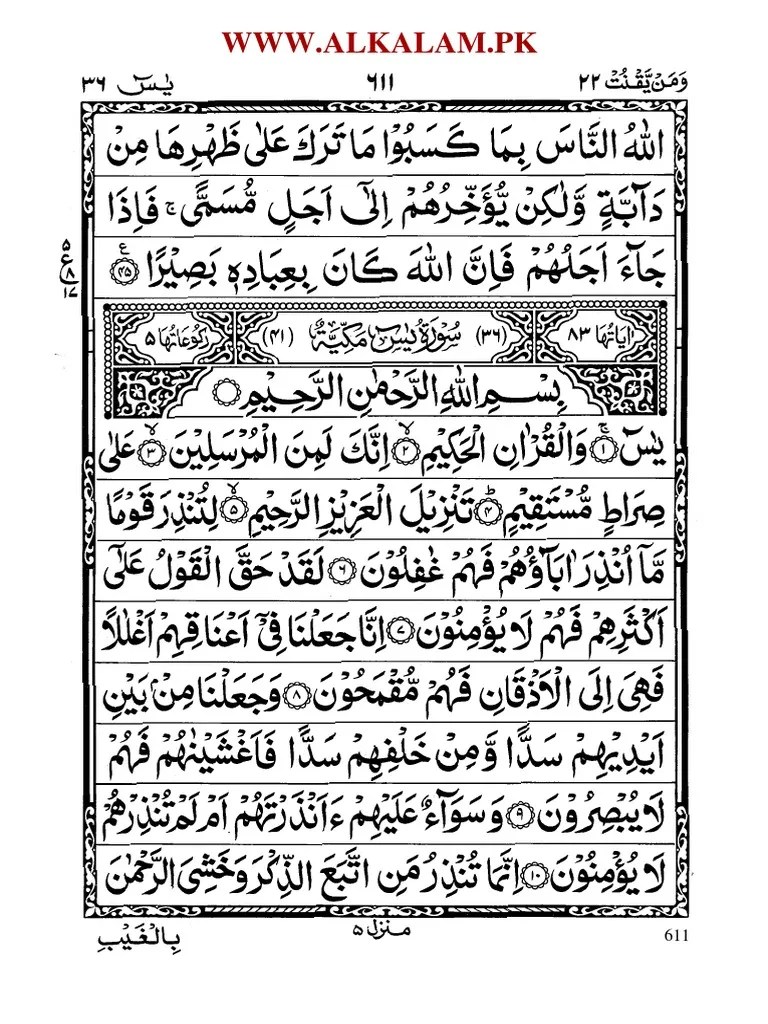 WWW.ALKALAM.PK
وَمَنۡ يَّقۡنُتۡ ٢٢ ٦١١ يٰسٓ ٣٦
اللّٰهُ النَّاسَ بِمَا كَسَبُوۡا مَا تَرَكَ عَلٰى ظَهۡرِهَا مِنۡ
دَآبَّةٍ وَّلٰكِنۡ يُّؤَخِّرُهُمۡ اِلٰٓى اَجَلٍ مُّسَمًّى ۚ فَاِذَا
جَآءَ اَجَلُهُمۡ فَاِنَّ اللّٰهَ كَانَ بِعِبَادِهٖ بَصِيۡرًا ﴿٤٥﴾
ع ٥ ٨ ١٧
اٰيَاتُهَا ٨٣ (٣٦) سُوۡرَةُ يٰسٓ مَكِّيَّةٌ (٤١) رُكُوۡعَاتُهَا ٥
بِسۡمِ اللّٰهِ الرَّحۡمٰنِ الرَّحِيۡمِ
يٰسٓ ۚ ﴿١﴾ وَالۡقُرۡاٰنِ الۡحَكِيۡمِ ۙ ﴿٢﴾ اِنَّكَ لَمِنَ الۡمُرۡسَلِيۡنَ ۙ ﴿٣﴾ عَلٰى
صِرَاطٍ مُّسۡتَقِيۡمٍ ؕ ﴿٤﴾ تَنۡزِيۡلَ الۡعَزِيۡزِ الرَّحِيۡمِ ۙ ﴿٥﴾ لِتُنۡذِرَ قَوۡمًا
مَّاۤ اُنۡذِرَ اٰبَآؤُهُمۡ فَهُمۡ غٰفِلُوۡنَ ﴿٦﴾ لَقَدۡ حَقَّ الۡقَوۡلُ عَلٰٓى
اَكۡثَرِهِمۡ فَهُمۡ لَا يُؤۡمِنُوۡنَ ﴿٧﴾ اِنَّا جَعَلۡنَا فِىۡۤ اَعۡنَاقِهِمۡ اَغۡلٰلًا
فَهِىَ اِلَى الۡاَذۡقَانِ فَهُمۡ مُّقۡمَحُوۡنَ ﴿٨﴾ وَجَعَلۡنَا مِنۡۢ بَيۡنِ
اَيۡدِيۡهِمۡ سَدًّا وَّمِنۡ خَلۡفِهِمۡ سَدًّا فَاَغۡشَيۡنٰهُمۡ فَهُمۡ
لَا يُبۡصِرُوۡنَ ﴿٩﴾ وَسَوَآءٌ عَلَيۡهِمۡ ءَاَنۡذَرۡتَهُمۡ اَمۡ لَمۡ تُنۡذِرۡهُمۡ
لَا يُؤۡمِنُوۡنَ ﴿١٠﴾ اِنَّمَا تُنۡذِرُ مَنِ اتَّبَعَ الذِّكۡرَ وَخَشِىَ الرَّحۡمٰنَ
بِالۡغَيۡبِ
منزل ٥
611